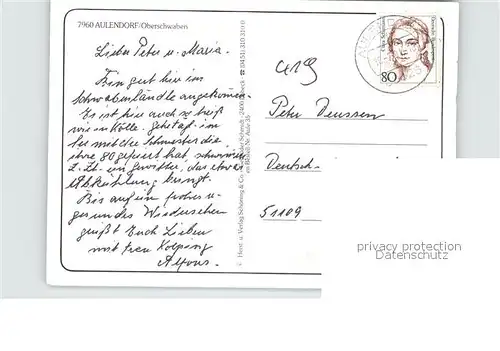 7960 AULENDORF/Oberschwaben
Lieber Peter u. Maria.
Bin gut hier im
Schwabenländle angekommen.
Es ist hier auch so heiß
wie in Kölle.
bei meiner Schwester die
ihre 80 gefeiert hat,
z. Zt. ein Gewitter, das etwas
Abkühlung bringt.
Bis auf ein frohes u.
gesundes Wiedersehen
grüßt Euch Lieben
mit Treu Kolping
Alfons.
© Horst u. Verlag Schöning & Co. Schmidt · 2400 Lübeck ☎ (0451) 31031/0
Bestell-Nr. Aule 35
Peter Deussen
Deutsch-
51109
80
privacy protection
Datenschutz